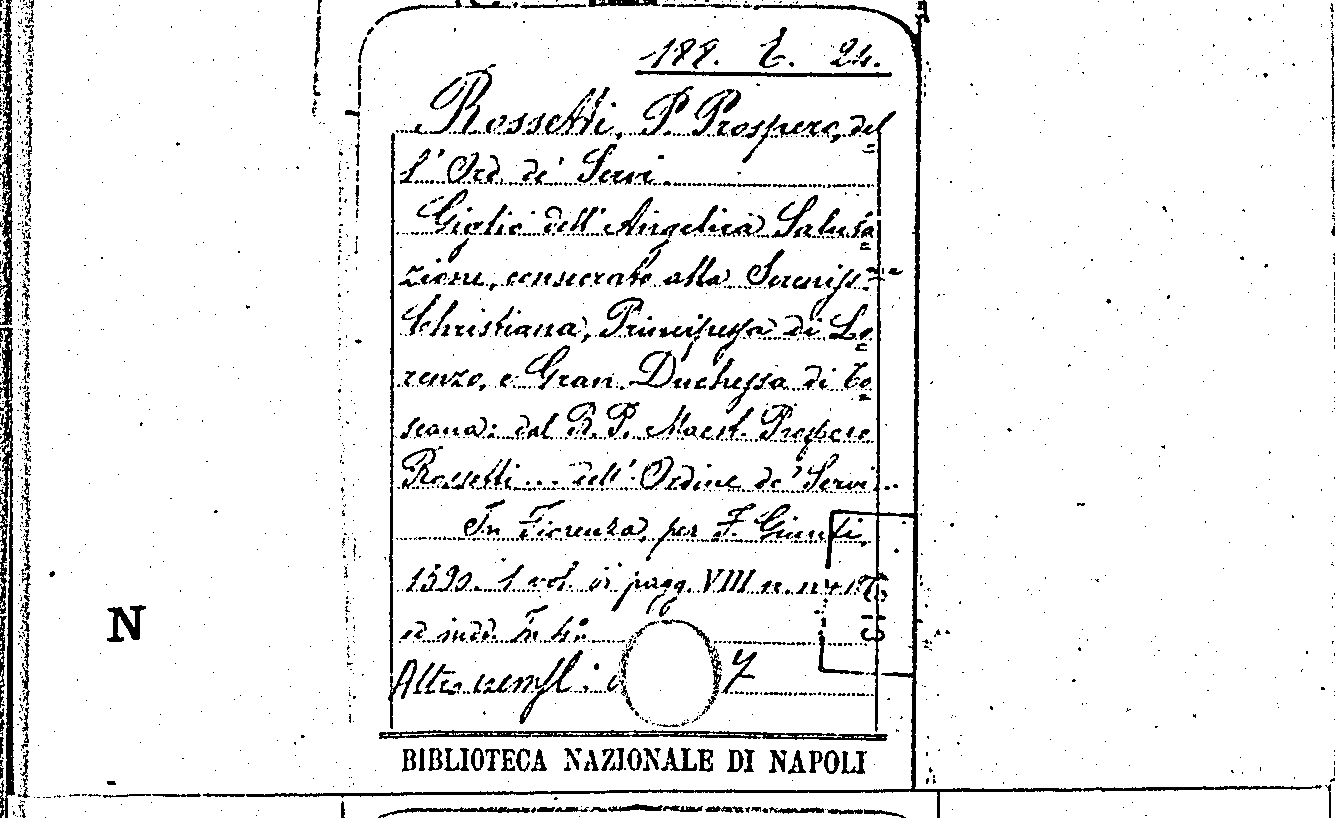 189. E. 24.
Rossetti, P. Prospero, del
l'Ord. de' Servi.
Giglio dell'Angelica Saluta
zione, consecrato alla Sereniss.
Christiana, Principessa di Lo
renzo, e Gran Duchessa di To
scana: dal R. P. Maest. Prospero
Rossetti ... dell'Ordine de' Servi...
In Fiorenza, per F. Giunti,
1590. 1 vol. di pagg. VIII n. n.
ed indd. In 4.°
Altro esempl:
N
BIBLIOTECA NAZIONALE DI NAPOLI